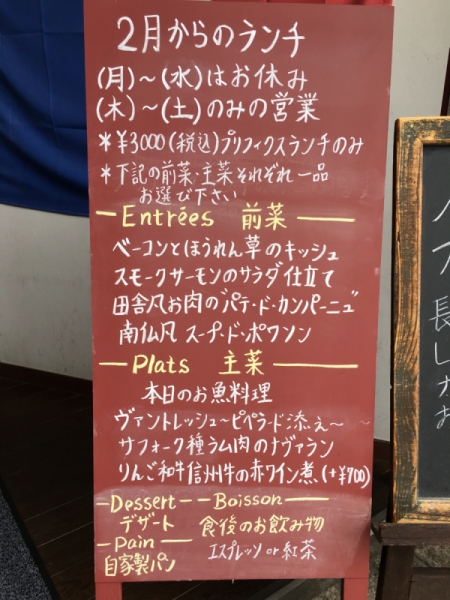 2月からのランチ
(月)～(水)はお休み
(木)～(土)のみの営業
*¥3000(税込)プリフィクスランチのみ
*下記の前菜・主菜それぞれ一品
お選び下さい
Entrées 前菜
ベーコンとほうれん草のキッシュ
スモークサーモンのサラダ仕立て
田舎風お肉のパテ・ド・カンパーニュ
南仏風 スープ・ド・ポワソン
Plats 主菜
本日のお魚料理
ヴァントレッシュ～ピペラード添え～
サフォーク種ラム肉のナヴァラン
りんご和牛信州牛の赤ワイン煮(+¥700)
Dessert Boisson
デザート 食後のお飲み物
Pain エスプレッソor紅茶
自家製パン
長
し